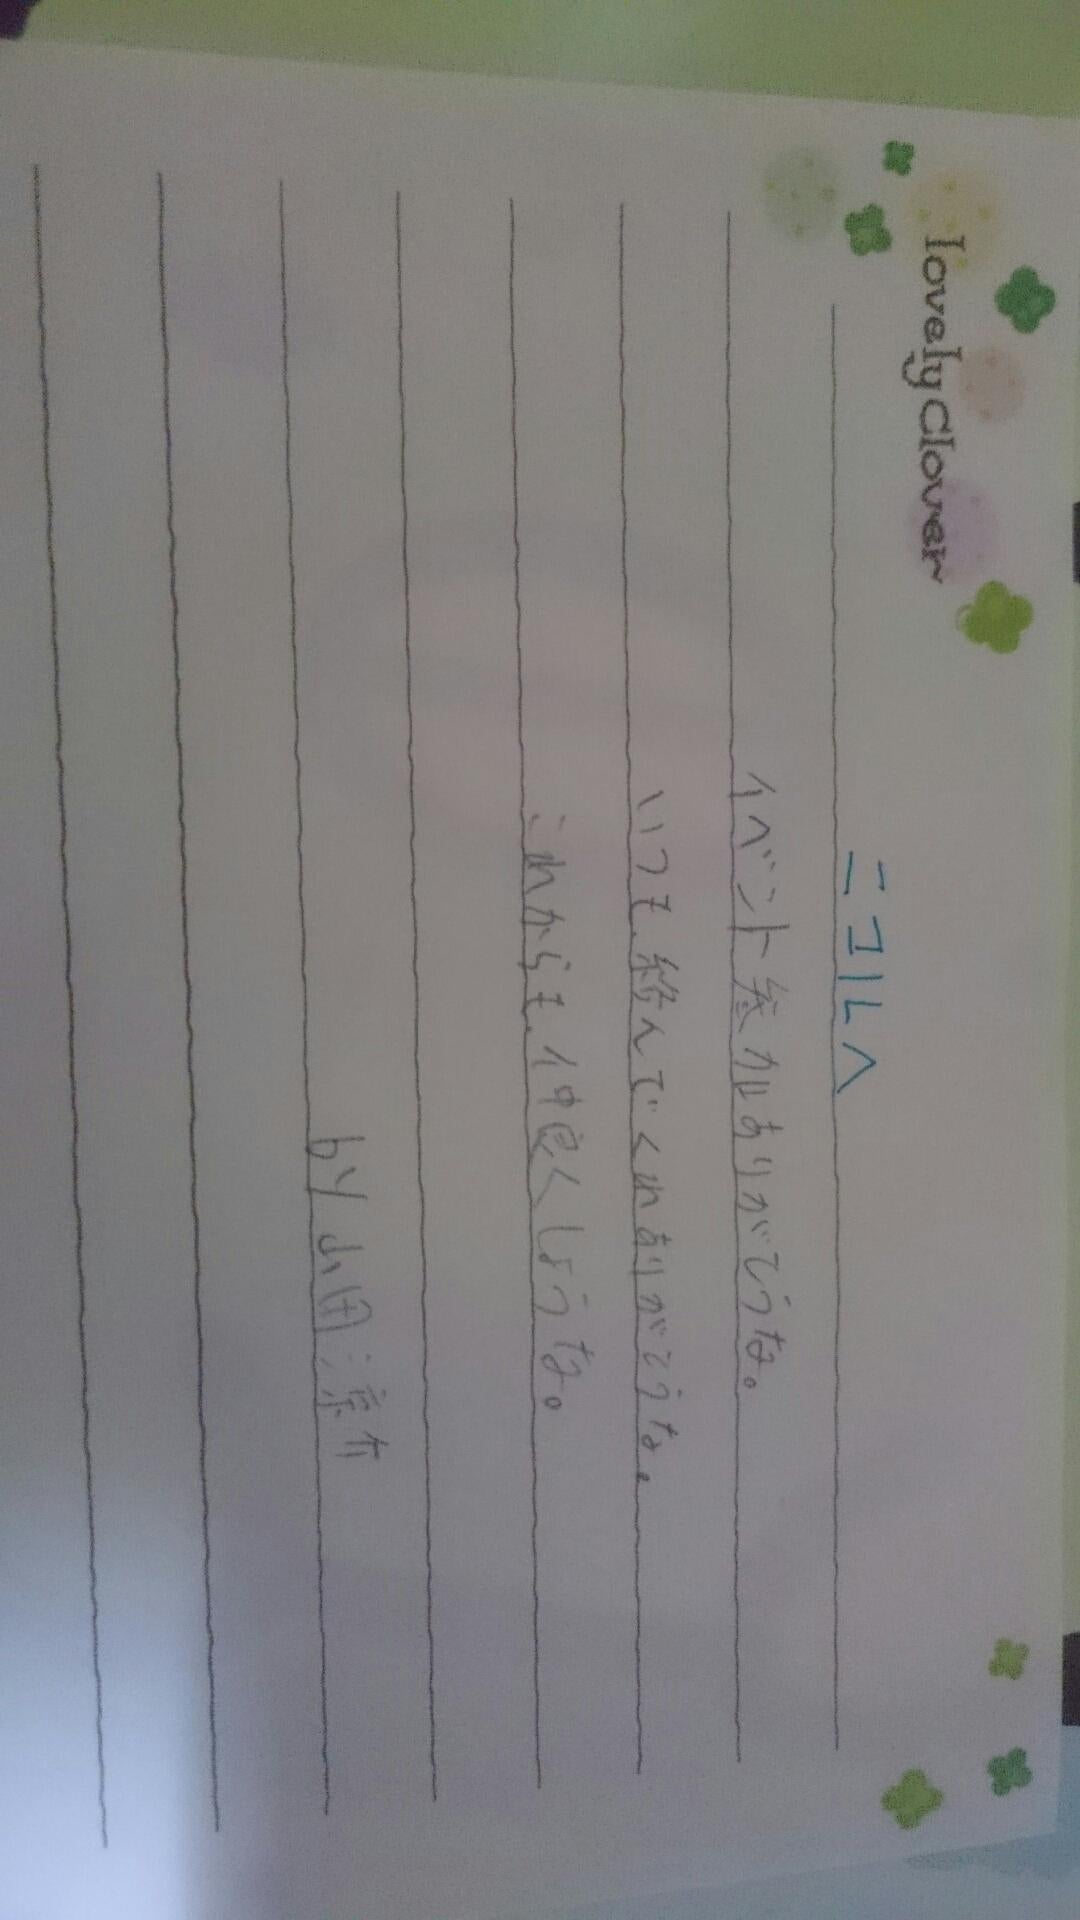 Lovely Clover
ニコルへ
イベント参加ありがとうな。
いつも、絡んでくれありがとうな。
これからも、仲良くしようなな。
by 山田涼介